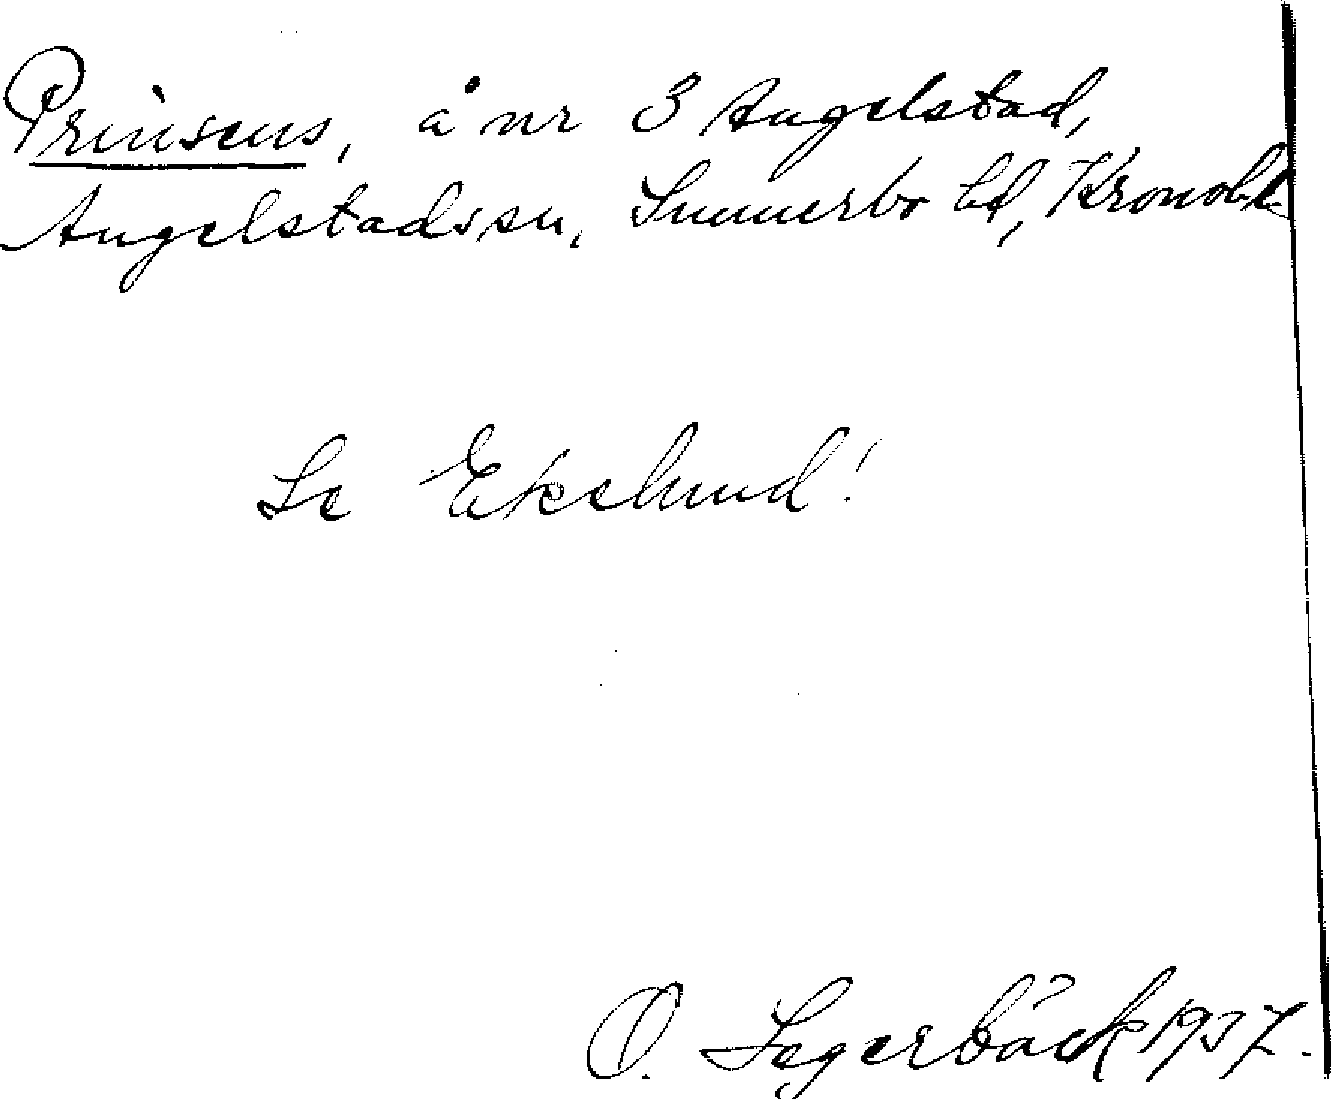 Prinsens, å nr 3 Angelstad,
Angelstads sn, Sunnerbo hd, Kronob. l.
Se Ekelund!
O. Segerbäck 1937.